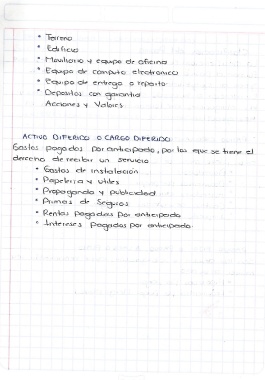 * Terreno
* Edificio
* Mobiliario y equipo de oficina
* Equipo de computo electronico
* Equipo de entrega o reparto
* Depositos con garantia
Acciones y Valores
ACTIVO DIFERIDO O CARGO DIFERIDO:
Gastos pagados por anticipado, por los que se tiene el
derecho de recibir un servicio
* Gastos de instalación
* Papeleria y utiles
* Propaganda y publicidad
* Primas de Seguros
* Rentas pagadas por anticipado
* Intereses Pagados por anticipado